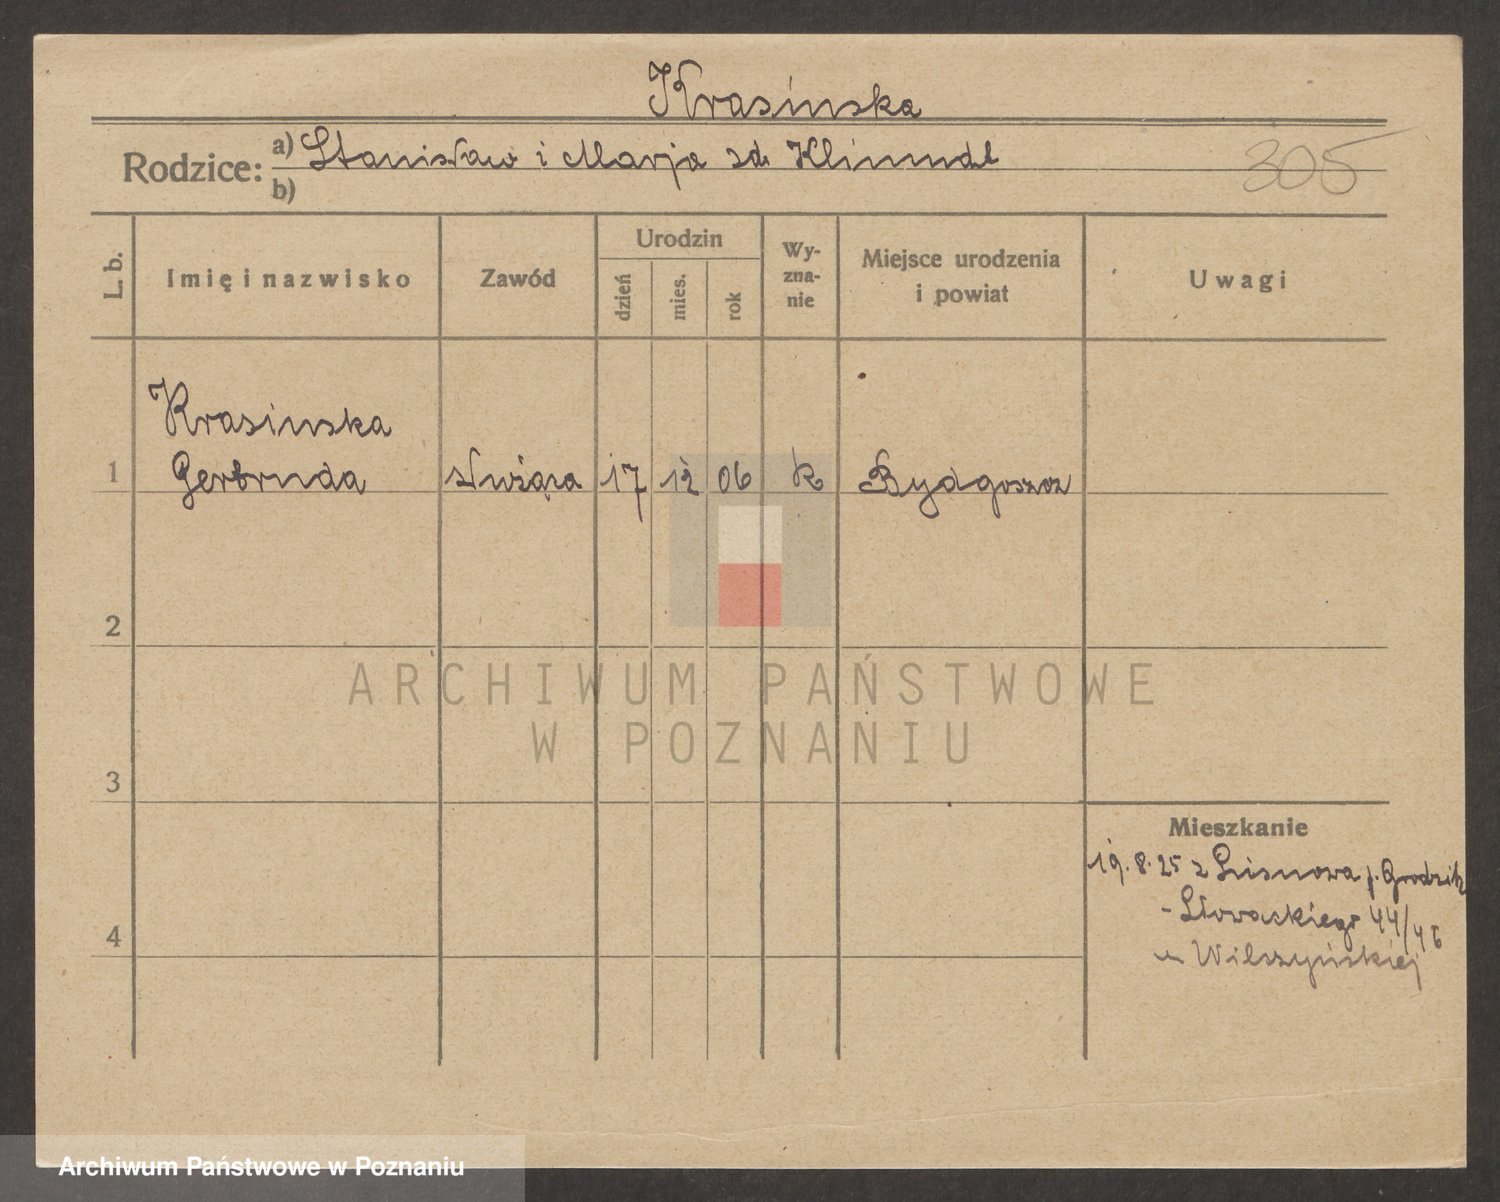 Krasinska
305
Rodzice:
a) Stanisław i Marja zd.
b)
L. b.
Imię i nazwisko
Zawód
Urodzin
dzień
mies.
rok
Wy-
zna-
nie
Miejsce urodzenia
i powiat
Uwagi
Krasinska
1 Gertruda służąca 17 12 06 k Bydgoszcz
2
3
4
Mieszkanie
19.8.25 z p. Grodzisk
- Słowackiego 44/46
u Wilczyńskiej
ARCHIWUM PAŃSTWOWE
W POZNANIU
Archiwum Państwowe w Poznaniu